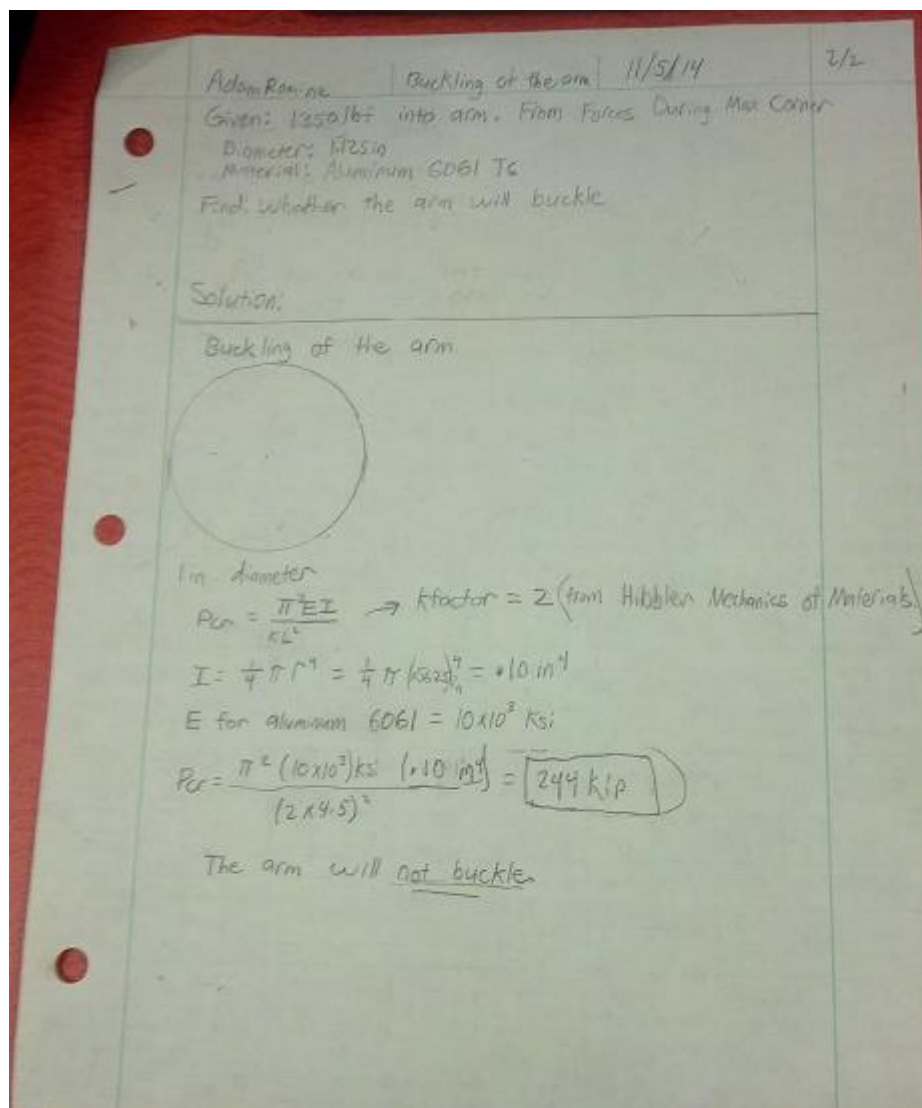 Adam Romine Buckling of the arm 11/5/14 2/2
Given: 1350 lbf into arm. From Forces During Max Corner
Diameter: 1.125in
Material: Aluminum 6061 T6
Find: Whether the arm will buckle
Solution:
Buckling of the arm
1in diameter
Pcr = π²EI / KL² → kfactor = 2 (from Hibbler Mechanics of Materials)
I = 1/4 π r⁴ = 1/4 π (.5625)⁴ = .10 in⁴
E for aluminum 6061 = 10x10³ Ksi
Pcr = π² (10x10³)ksi (.10 in⁴) / (2x4.5)² = 244 kip
The arm will not buckle.